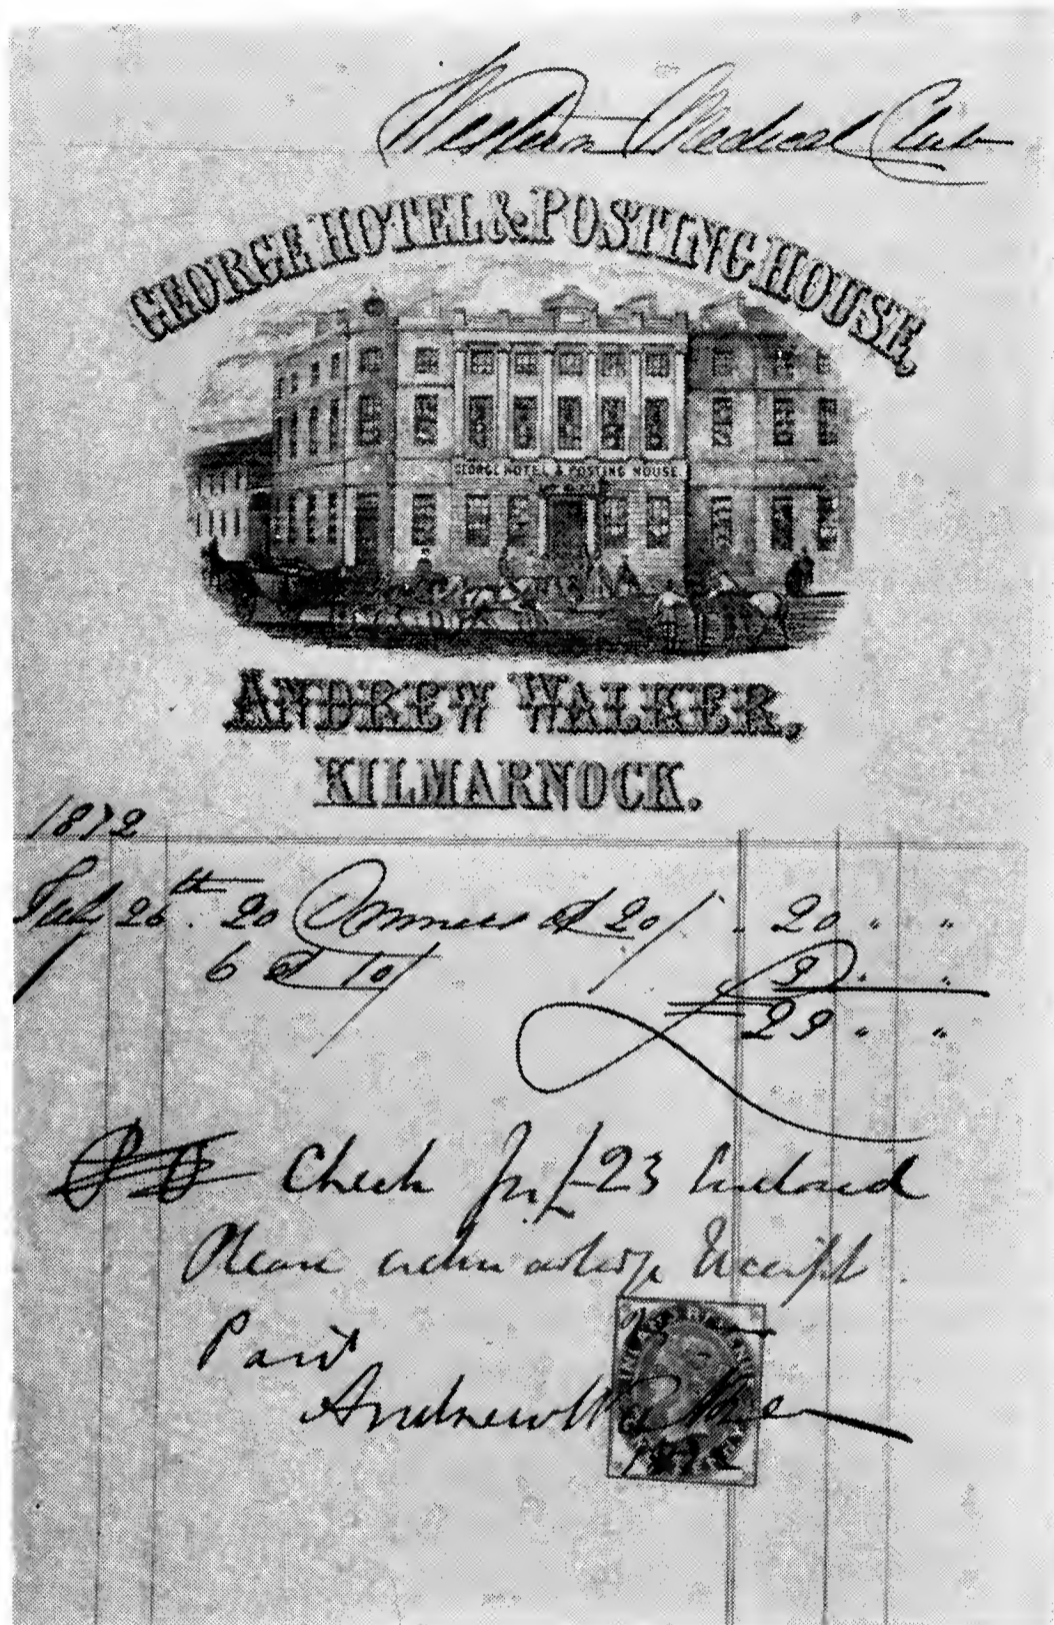 Western Medical Club
GEORGE HOTEL & POSTING HOUSE,
GEORGE HOTEL & POSTING HOUSE
ANDREW WALKER,
KILMARNOCK.
1872
July 26th. 20 Dinners at 20/ . 20 " "
6 at 10/ 3 " "
£23 " "
Check for £23 Enclosed
Please acknowledge Receipt.
Paid
Andrew Walker
1872